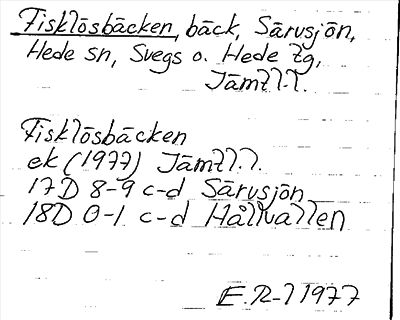 Fisklösbäcken, bäck, Särvsjön,
Hede sn, Svegs o. Hede tg,
Jämtl.l.
Fisklösbäcken
ek (1977) Jämtl.l.
17D 8-9 c-d Särvsjön
18D 0-1 c-d Hållvallen
E.R-l 1977